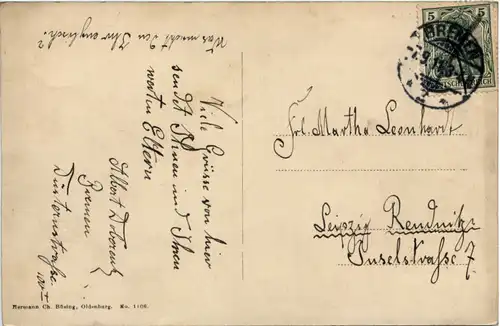 Was macht denn Ihr englisch?
Viele Grüsse von hier
sendet Ihnen und Ihren
werten Eltern
Albert
Bremen
Frl. Martha Leonhardt
Leipzig Reudnitz
Inselstrasse 7.
5 5
BREMEN
Hermann Ch. Büsing, Oldenburg. No. 1106.